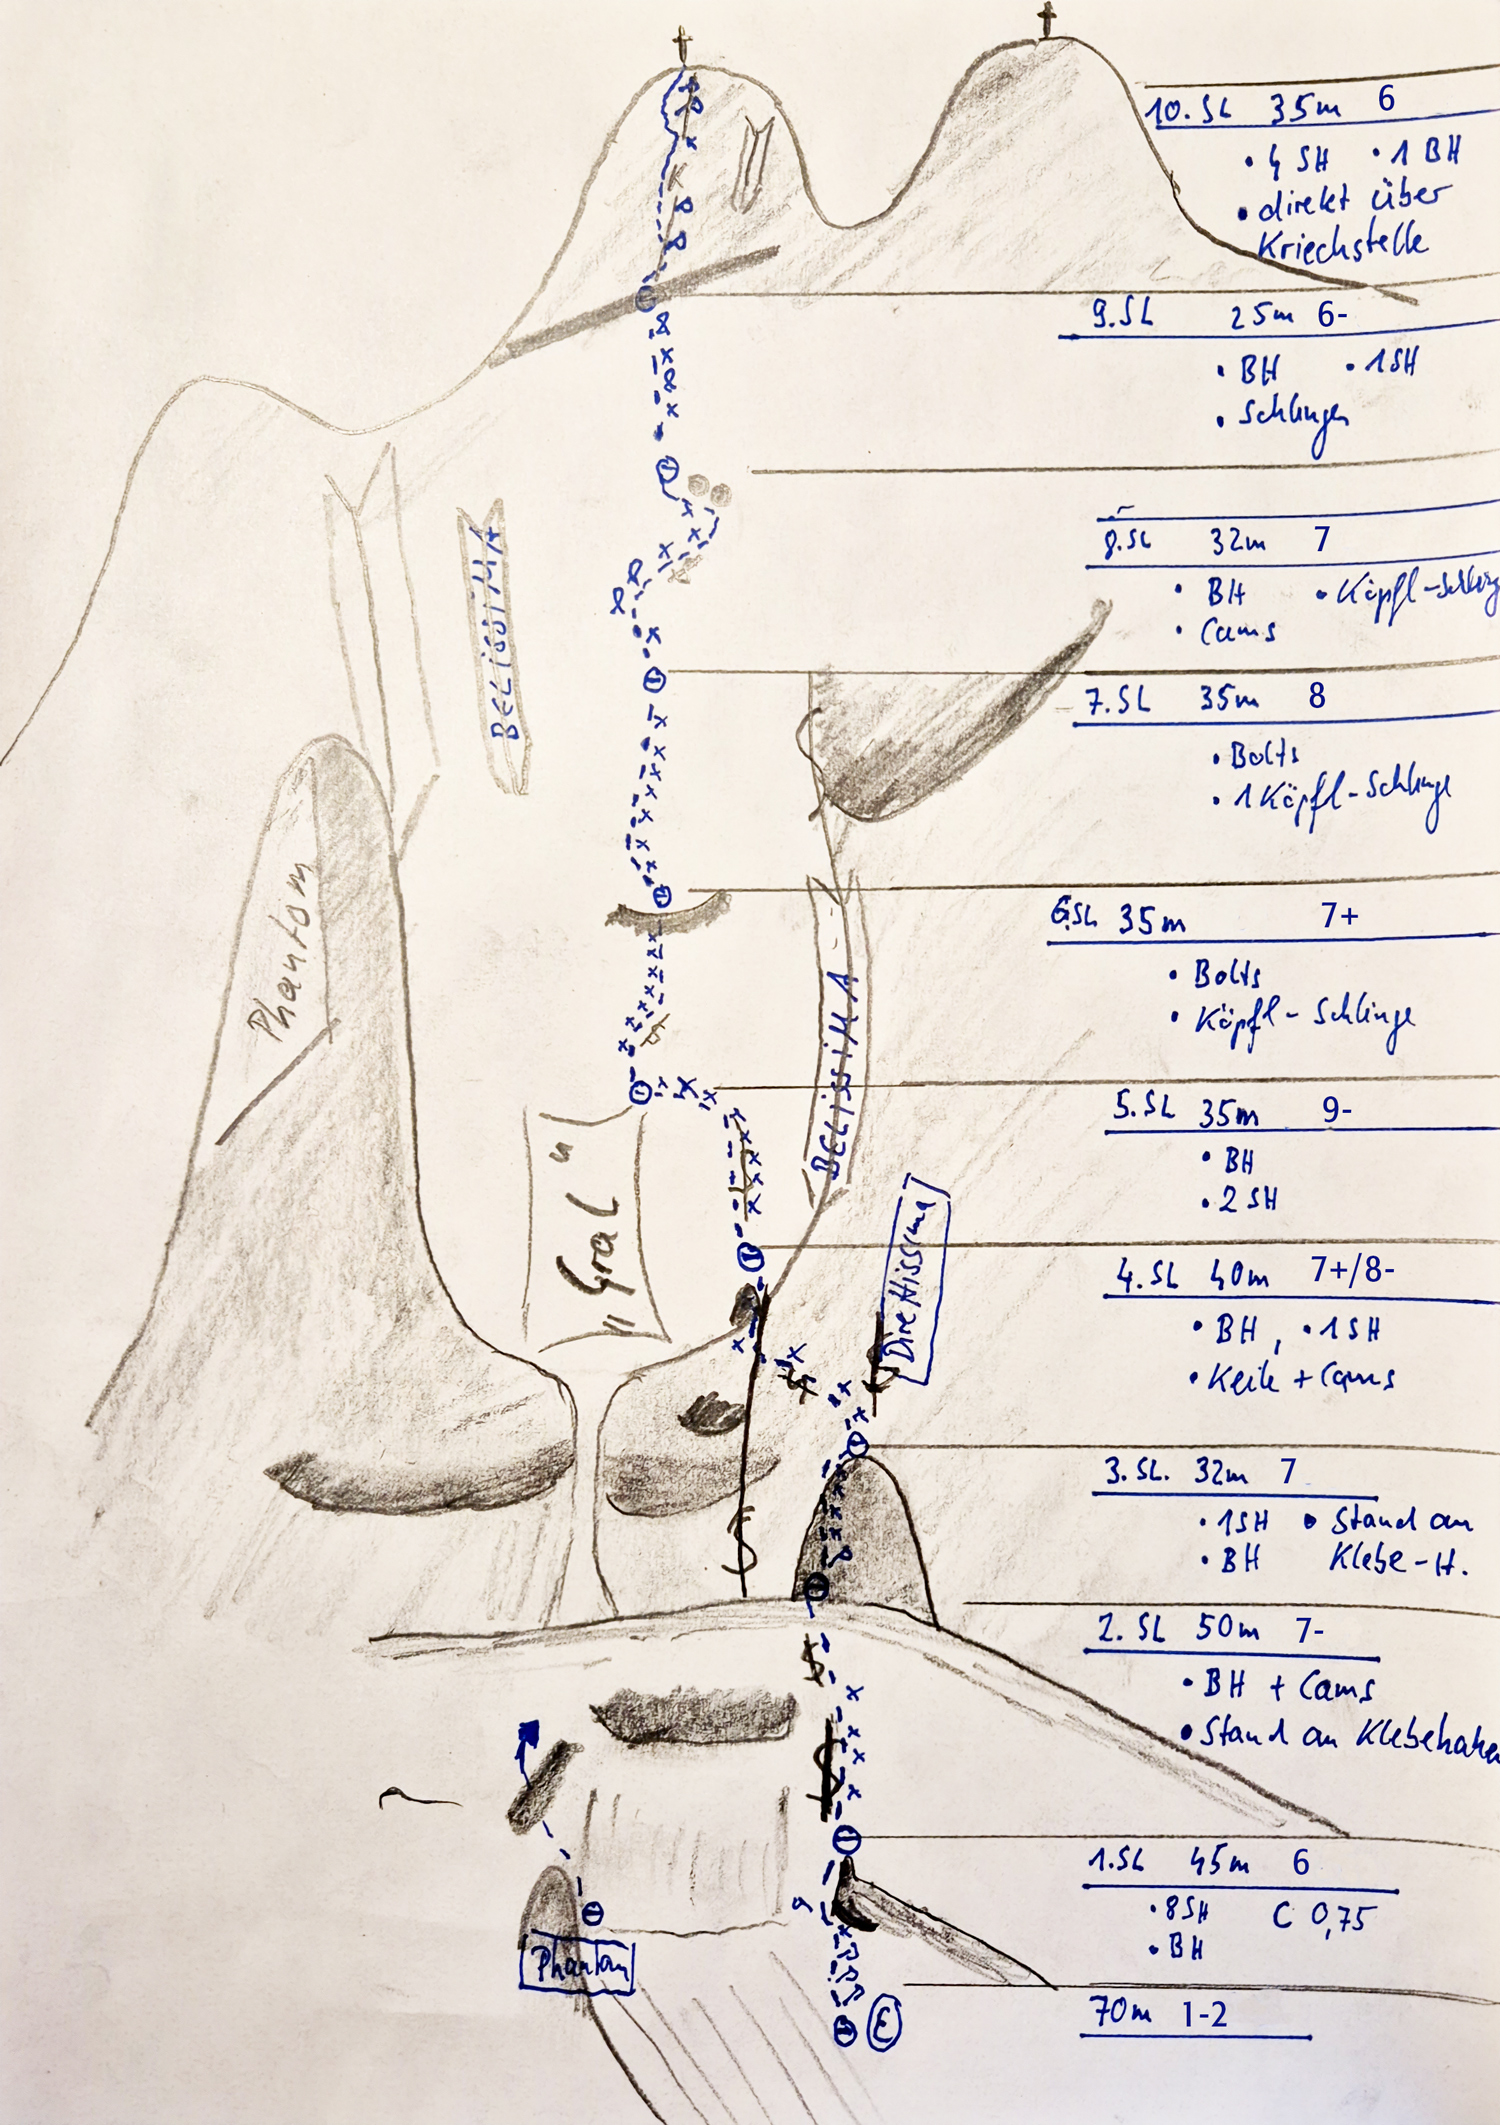 10. SL 35m 6
• 4 SH • 1 BH
• direkt über
Kriechstelle
9. SL 25m 6-
• BH • 1SH
• Schlingen
8. SL 32m 7
• BH • Köpfl-Schling
• Cams
7. SL 35m 8
• Bolts
• 1 Köpfl-Schlinge
6. SL 35m 7+
• Bolts
• Köpfl-Schlinge
5. SL 35m 9-
• BH
• 2 SH
4. SL 40m 7+/8-
• BH, • 1SH
• Keile + Cams
3. SL. 32m 7
• 1SH • Stand an
• BH Klebe-H.
2. SL 50m 7-
• BH + Cams
• Stand an Klebehaken
1. SL 45m 6
• 8SH C 0,75
• BH
70m 1-2
BELISSIMA
Phantom
BELISSIMA
"Gral"
Direttissima
Phantom
E